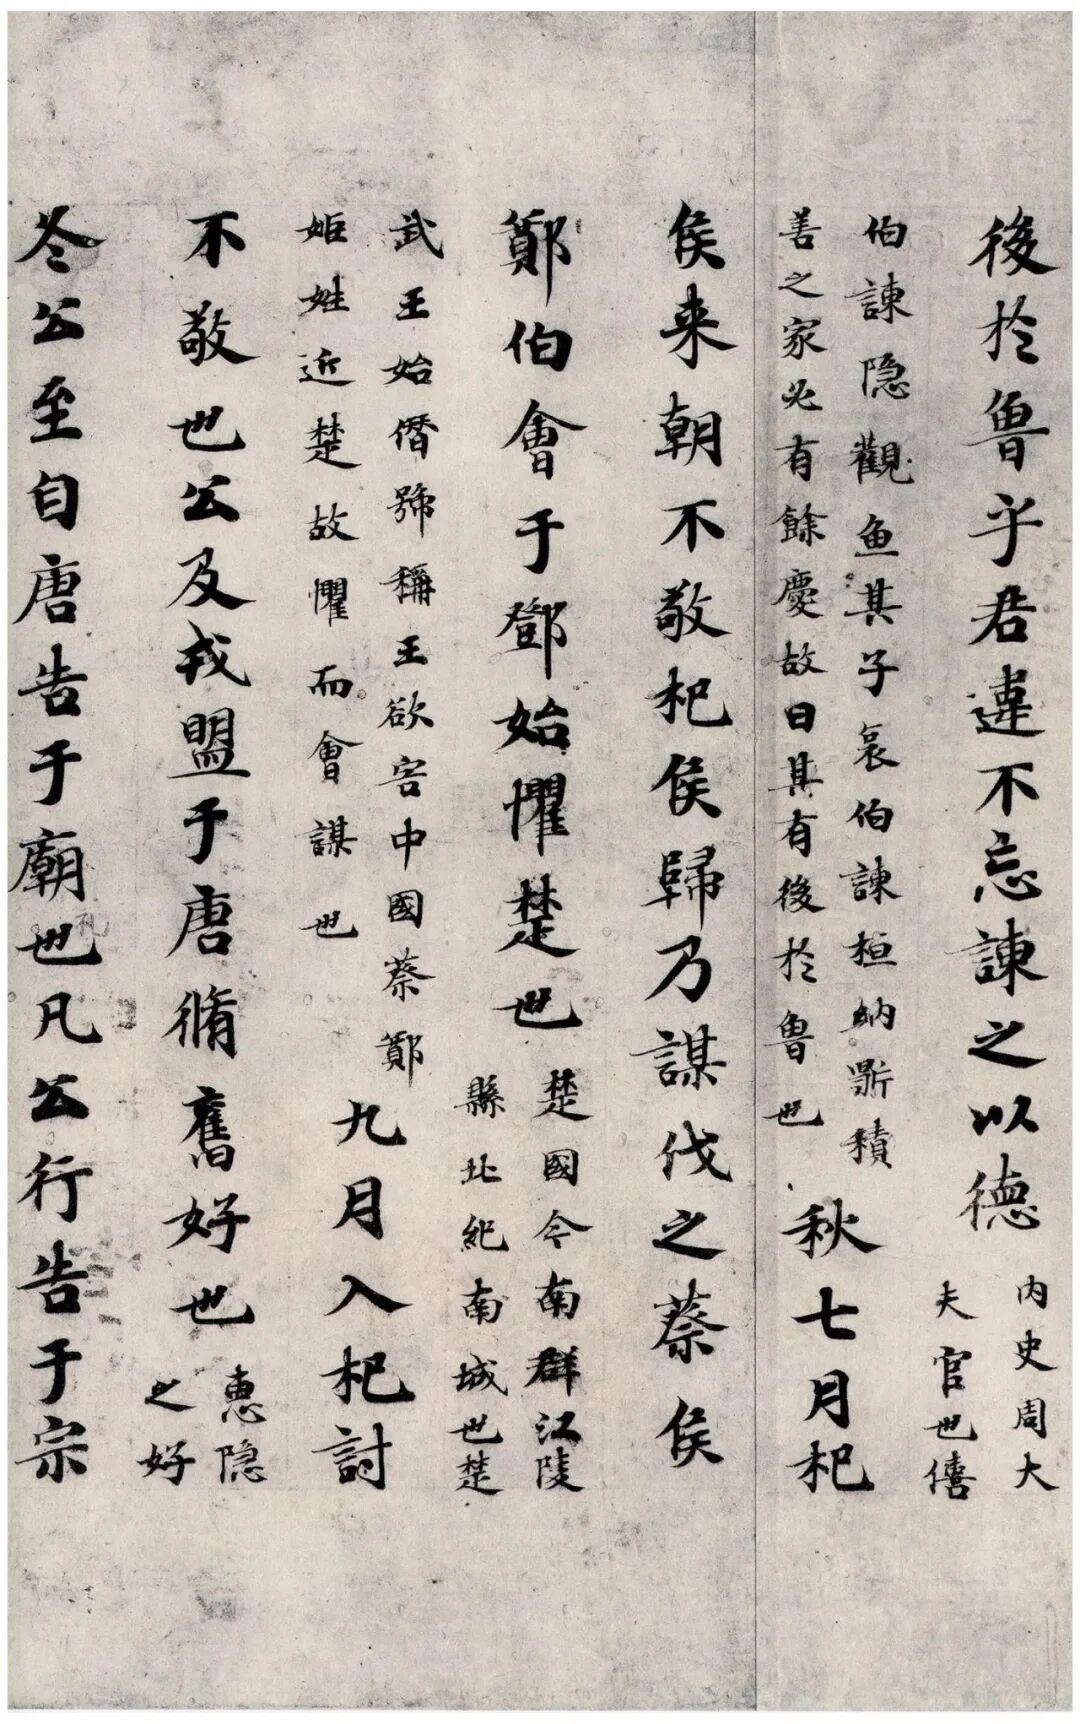 後於魯乎君違不忘諫之以德
内史周大
夫官也僖
伯諫隐觀魚其子哀伯諫桓納鼎積
善之家必有餘慶故曰其有後於魯也
秋七月杞
侯来朝不敬杞侯歸乃謀伐之蔡侯
鄭伯會于鄧始懼楚也
楚國今南群江陵
縣北紀南城也楚
武王始僭號稱王欲害中國蔡鄭
姬姓近楚故懼而會謀也
九月入杞討
不敬也公及戎盟于唐脩舊好也
惠隐
之好
冬公至自唐告于廟也凡公行告于宗